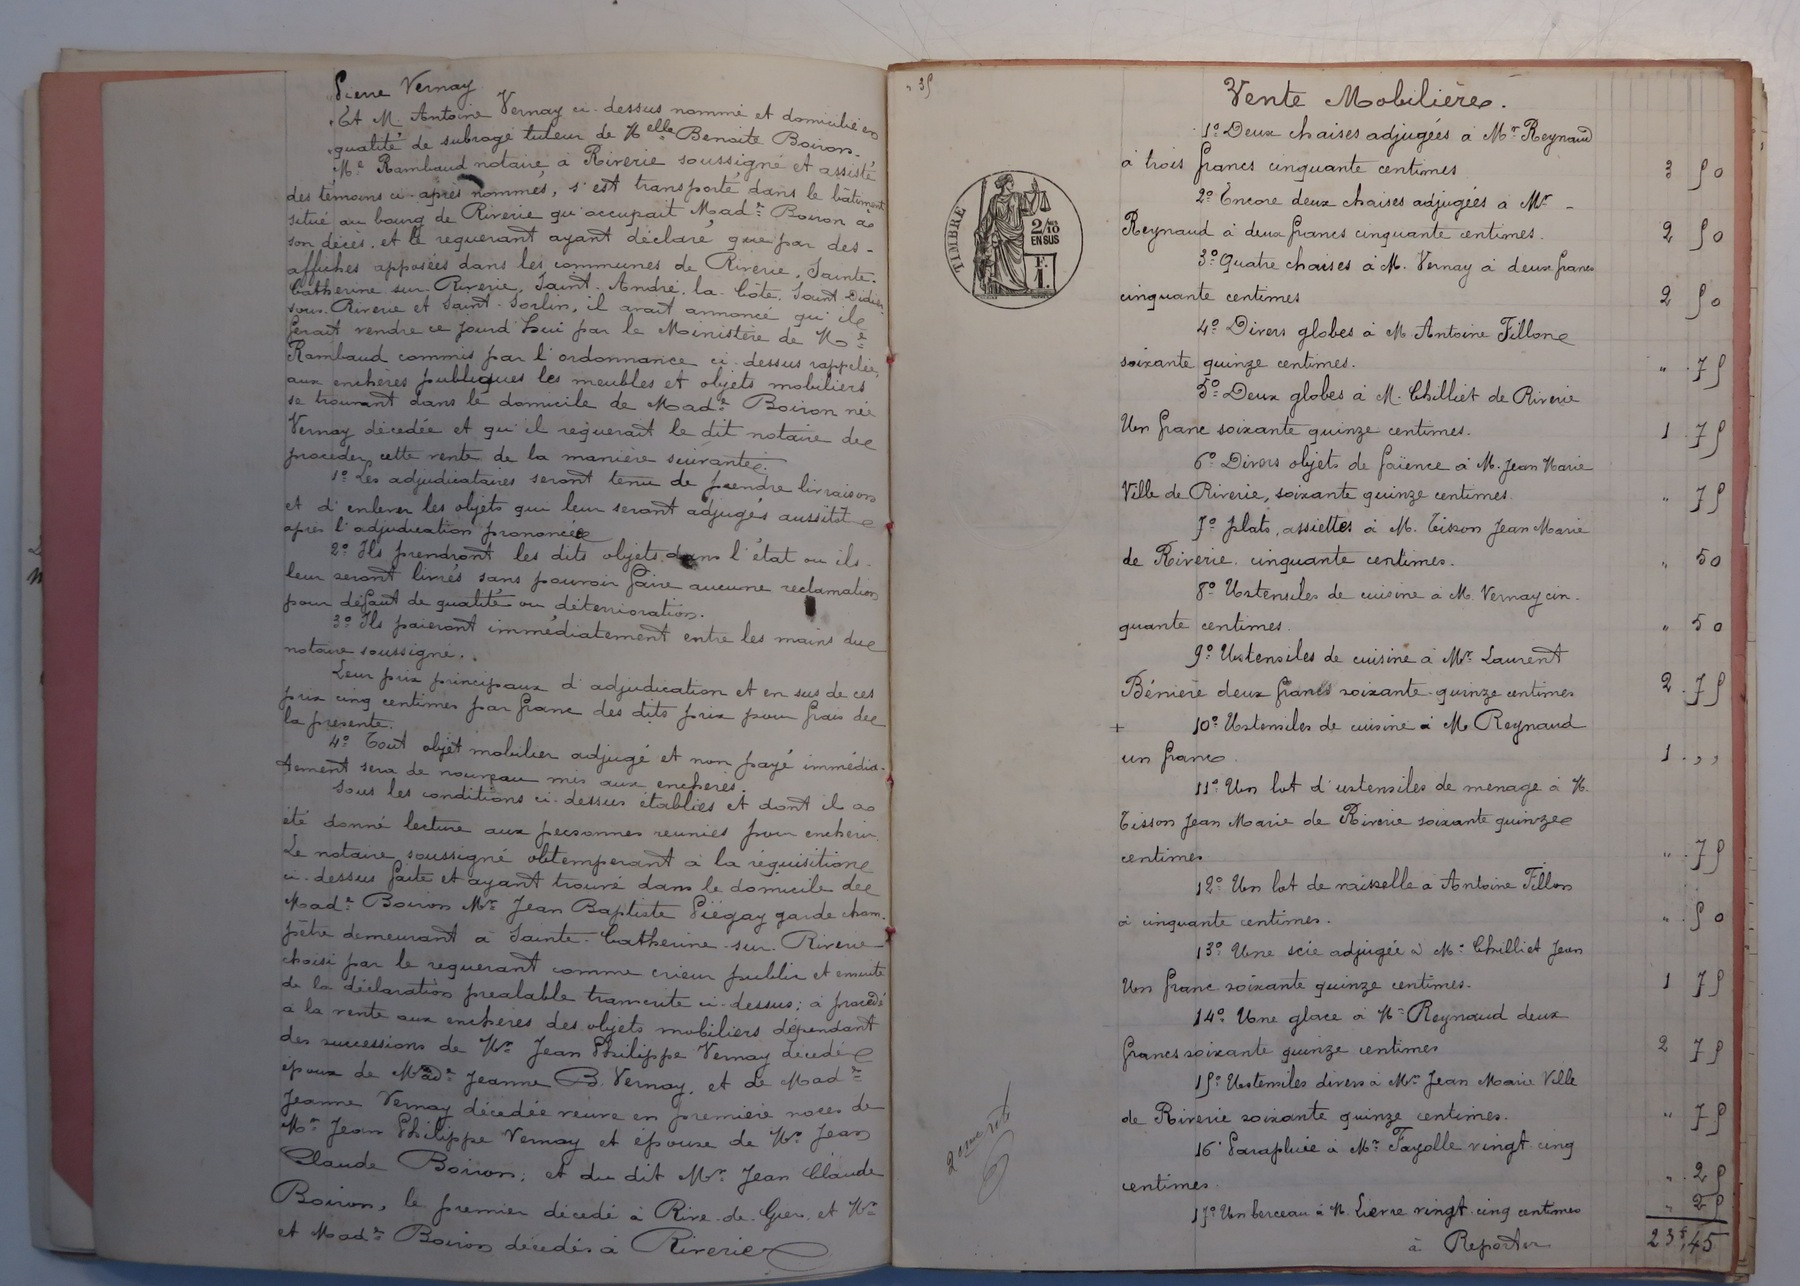 Pierre Vernay
Et M. Antoine Vernay ci-dessus nommé et domicilié en
qualité de subrogé tuteur de Melle Benoite Boiron.
Me Rambaud notaire à Riverie soussigné et assisté
des témoins ci-après nommés, s'est transporté dans le bâtiment
situé au bourg de Riverie qu'occupait Made Boiron à
son décès. et le requerant ayant déclaré, que par des-
affiches apposées dans les communes de Riverie, Sainte.
Catherine sur Riverie, Saint. André. la. Côte, Saint Didier
sous. Riverie et Saint-Sorlin, il avait annoncé qu'il
ferait vendre ce jourd'hui par le Ministère de Me
Rambaud commis par l'ordonnance ci-dessus rappelée,
aux enchères publiques les meubles et objets mobiliers
se trouvant dans le domicile de Made Boiron née
Vernay décédée et qu'il requerait le dit notaire de
procéder cette vente de la manière suivante.
1º Les adjudicataires seront tenu de prendre livraison
et d'enlever les objets qui leur seront adjugés aussitôt
après l'adjudication prononcée
2º Ils prendront les dits objets dans l'état ou ils.
leur seront livrés sans pouvoir faire aucune reclamation
pour défaut de qualité ou déterrioration.
3º Ils paieront immédiatement entre les mains du
notaire soussigné.
Leur prix principaux d'adjudication et en sus de ces
prix cinq centimes par franc des dits prix pour frais de
la présente.
4º Tout objet mobilier adjugé et non payé immédia-
tement sera de nouveau mis aux enchères.
Sous les conditions ci-dessus établies et dont il a
été donné lecture aux personnes reunies pour enchérir
Le notaire soussigné obtemperant à la réquisition
ci-dessus faite et ayant trouvé dans le domicile de
Made Boiron Mr Jean Baptiste Piégay garde cham-
pêtre demeurant à Sainte-Catherine-sur-Riverie
choisi par le requerant comme crieur public et ensuite
de la déclaration prealable transcrite ci-dessus; a procédé
à la vente aux enchères des objets mobiliers dépendant
des successions de Mr Jean Philippe Vernay décédé
époux de Made Jeanne B. Vernay, et de Made
Jeanne Vernay décédée veuve en première noces de
Mr Jean Philippe Vernay et épouse de Mr Jean
Claude Boiron; et du dit Mr Jean Claude
Boiron, le premier décédé à Rive-de-Gier, et Mr
et Made Boiron décédés à Riverie
Vente Mobilière.
TIMBRE
2/10
EN SUS
F.
1.
1º Deux chaises adjugées à Mr Reynaud
à trois francs cinquante centimes 3 50
2º Encore deux chaises adjugées à Mr -
Reynaud à deux francs cinquante centimes. 2 50
3º Quatre chaises à M. Vernay à deux francs
cinquante centimes 2 50
4º Divers globes à M. Antoine Fillon
soixante quinze centimes. " 75
5º Deux globes à M. Chilliet de Riverie
Un franc soixante quinze centimes. 1 75
6º Divers objets de faïence à M. Jean Marie
Ville de Riverie, soixante quinze centimes. " 75
7º plats, assiettes à M. Tisson Jean Marie
de Riverie. cinquante centimes. " 50
8º Ustensiles de cuisine à M. Vernay cin-
quante centimes. " 50
9º Ustensiles de cuisine à Mr Laurent
Bénière deux francs soixante-quinze centimes 2 75
+ 10º Ustensiles de cuisine à M. Reynaud
un franc. 1 "
11º Un lot d'ustensiles de menage à M.
Tisson Jean Marie de Riverie soixante quinze
centimes " 75
12º Un lot de vaisselle a Antoine Fillon
à cinquante centimes. " 50
13º Une scie adjugée à Mr Chilliet Jean
Un franc soixante quinze centimes. 1 75
14º Une glace à Mr Reynaud deux
francs soixante quinze centimes 2 75
15º Ustensiles divers à Mr Jean Marie Ville
de Riverie soixante quinze centimes. " 75
16º Parapluie à Mr Fayolle vingt-cinq
centimes. " 25
17º Un berceau à M. Lierre vingt-cinq centimes " 25
à Reporter 23f,45